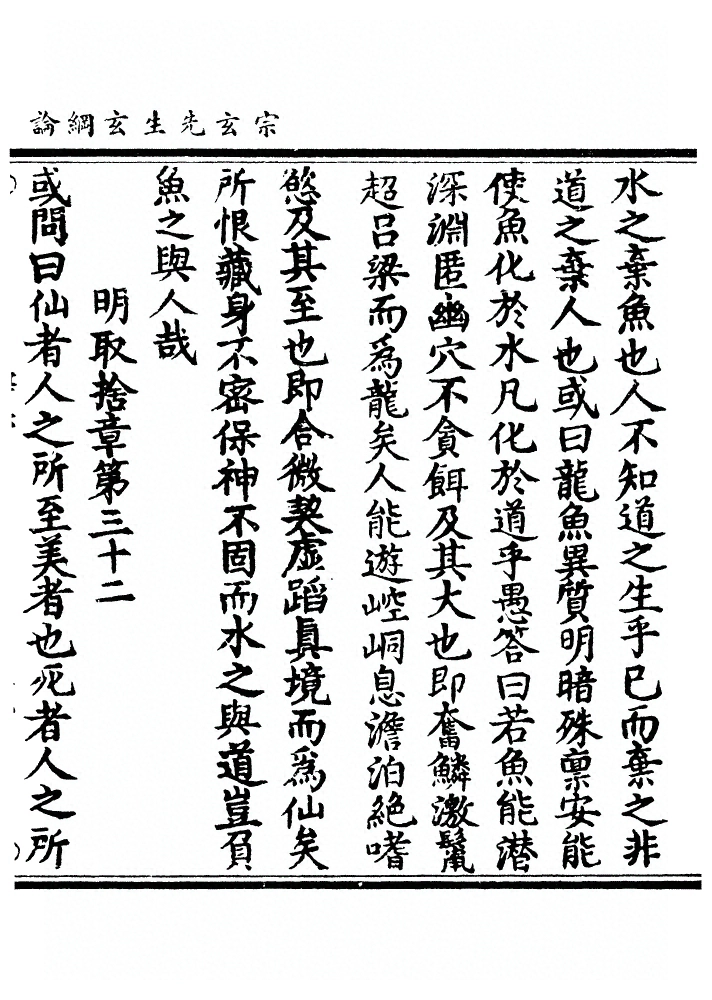 宗玄先生玄綱論
水之棄魚也人不知道之生乎已而棄之非
道之棄人也或曰龍魚異質明暗殊禀安能
使魚化於水凡化於道乎愚答曰若魚能潜
深淵匿幽穴不貪餌及其大也即奮鱗激鬣
超吕梁而為龍矣人能遊崆峒息澹泊絶嗜
慾及其至也即合微契虚蹈真境而為仙矣
所恨藏身不密保神不固而水之與道豈負
魚之與人哉
明取捨章第三十二
或問曰仙者人之所至美者也死者人之所